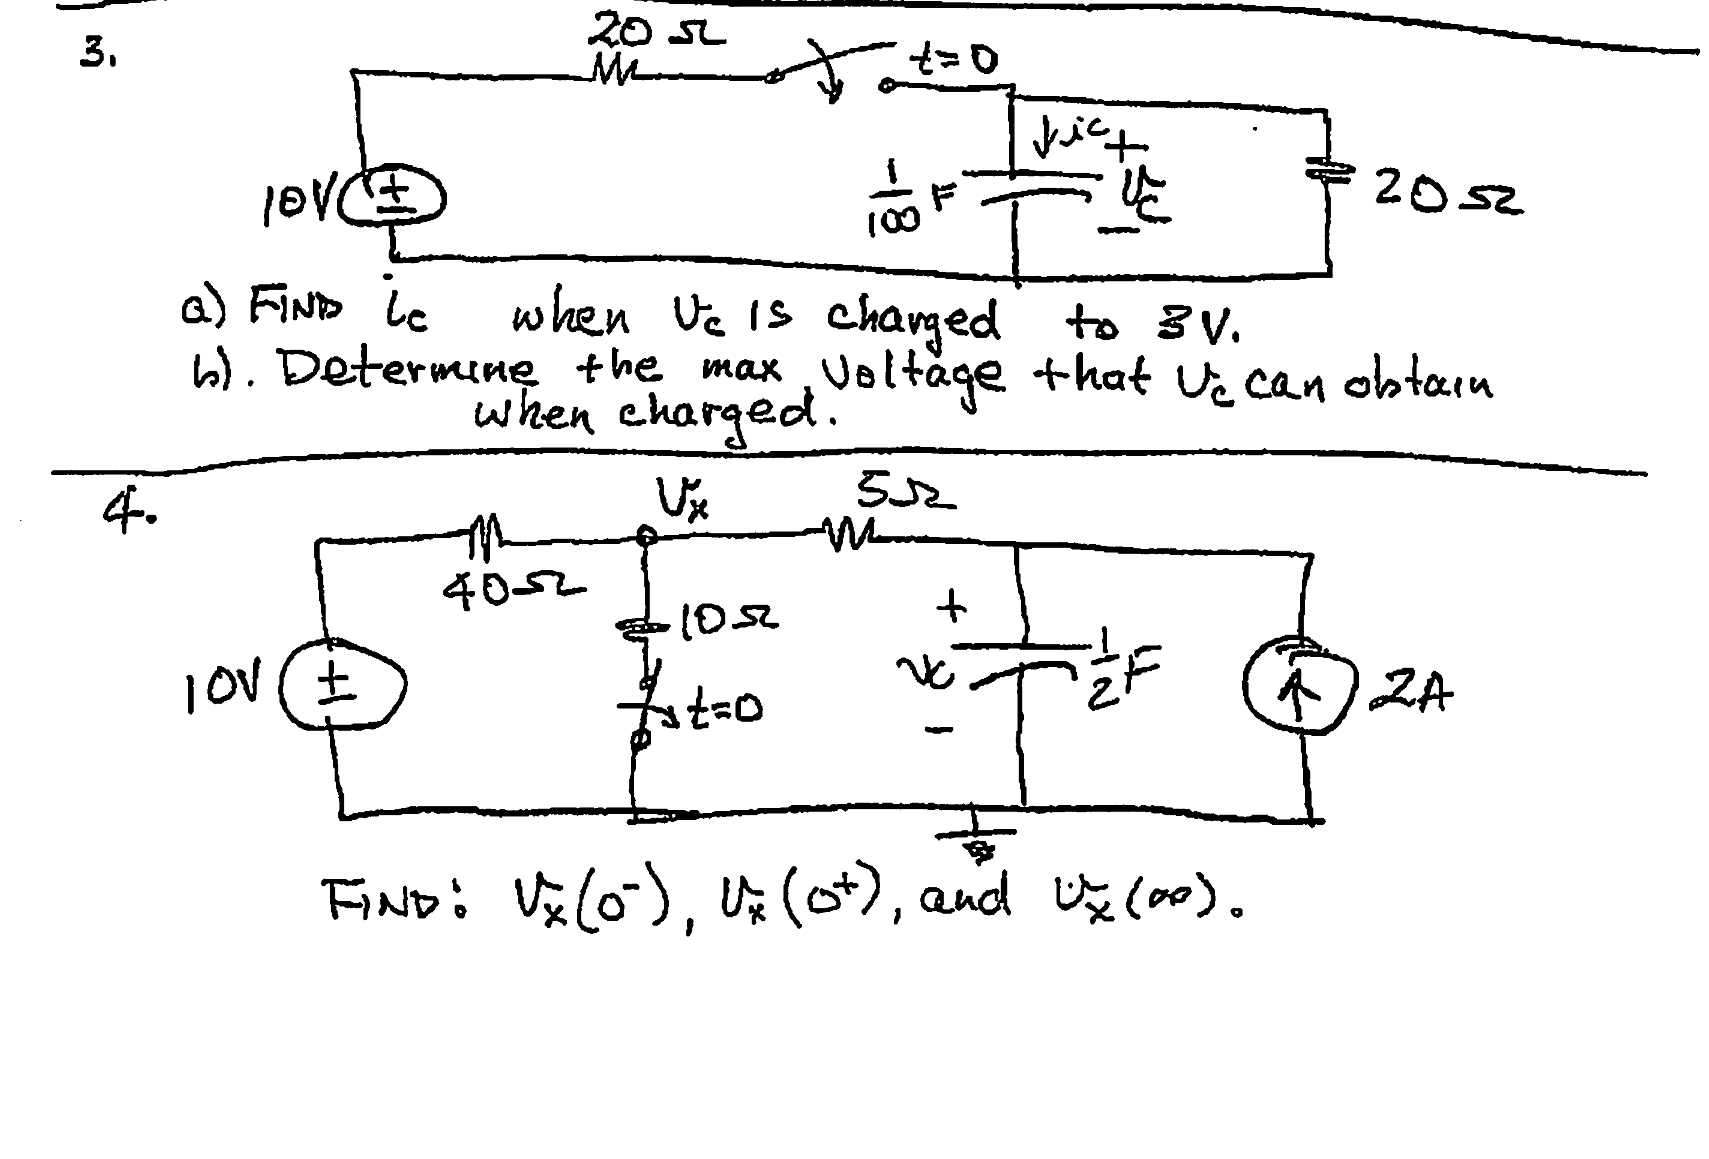 3.
20 Ω
t=0
10V
+
1/100 F
ic
+
Vc
−
20 Ω
a) FIND ic when Vc is charged to 3 V.
b). Determine the max voltage that Vc can obtain
when charged.
4.
Vx
5Ω
40Ω
10Ω
10V
+
−
t=0
+
vc
−
1/2 F
2A
FIND: Vx(0⁻), Vx(0⁺), and Vx(∞).